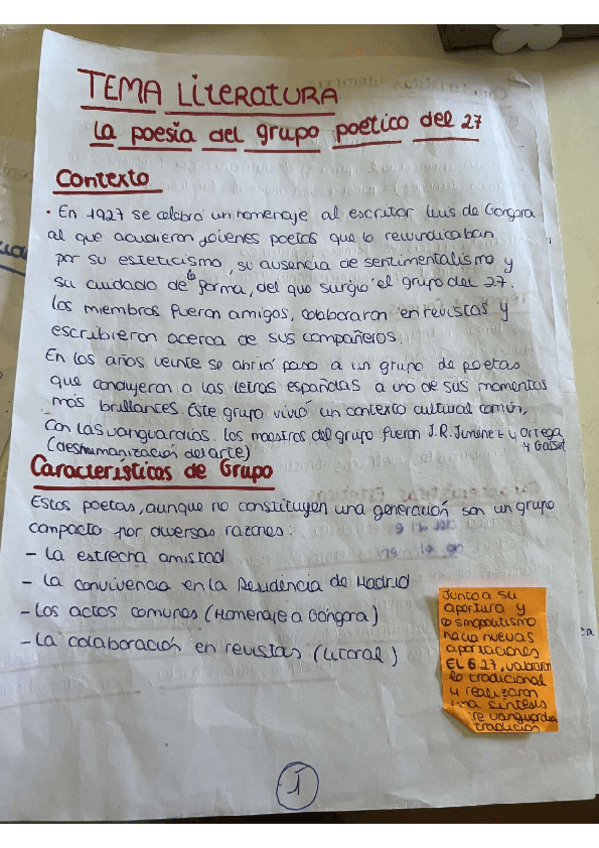 TEMA LITERATURA
La poesía del grupo poético del 27
Contexto
· En 1927 se celebró un homenaje al escritor Luis de Gongora
al que acudieron jóvenes poetas que lo reivindicaban
por su esteticismo, su ausencia de sentimentalismo y
su cuidado de la forma, del que surgió el grupo del 27.
Los miembros fueron amigos, colaboraron en revistas y
escribieron acerca de sus compañeros.
En los años veinte se abrió paso a un grupo de poetas
que condujeron a las letras españolas a uno de sus momentos
más brillantes. Este grupo vivió un contexto cultural común,
con las vanguardias. Los maestros del grupo fueron J.R. Jiménez y Ortega
y Gasset
(deshumanización del arte)
Características de Grupo
Estos poetas, aunque no constituyen una generación son un grupo
compacto por diversas razones:
- La estrecha amistad
- La convivencia en la Residencia de Madrid
- Los actos comunes (Homenaje a Góngora)
- La colaboración en revistas (Litoral)
Junto a su
apertura y
cosmopolitismo
hacia nuevas
aportaciones
EL G.27, valoraron
lo tradicional
y realizaron
una síntesis
tre vanguardia
tradición
1